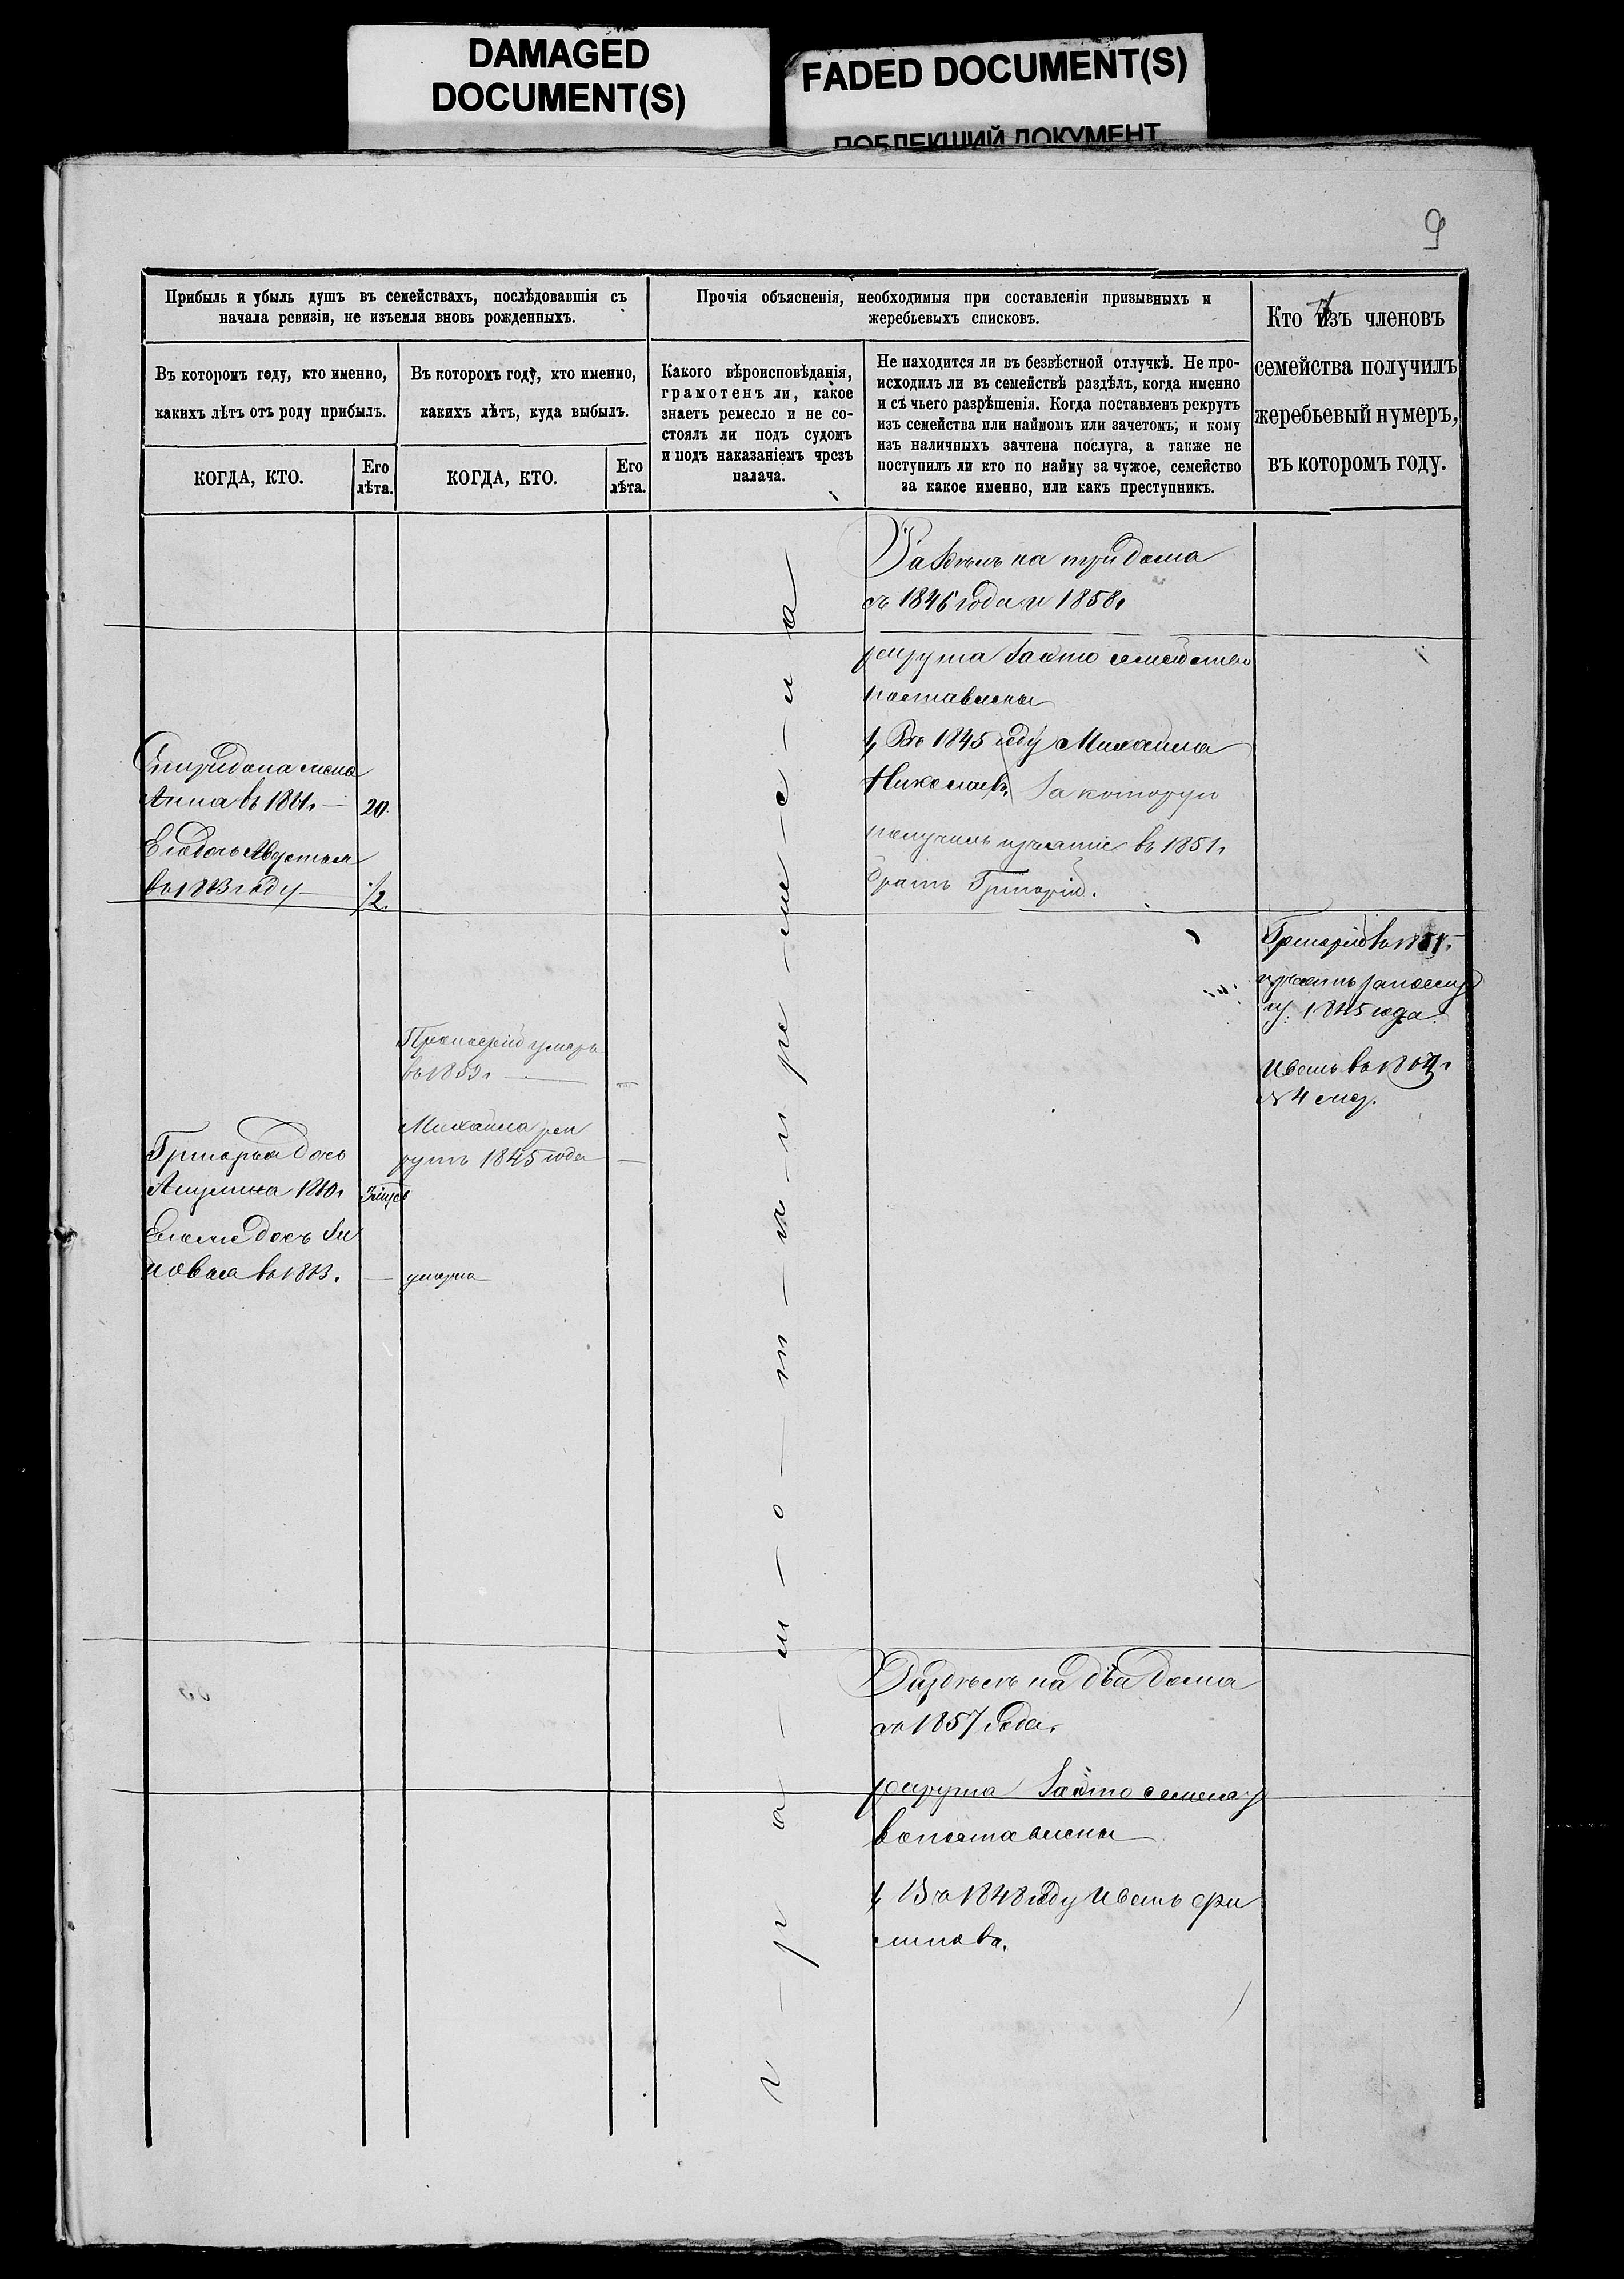 DAMAGED
DOCUMENT(S)
FADED DOCUMENT(S)
ПОБЛЕКШИЙ ДОКУМЕНТ
9
Прибыль и убыль душъ въ семействахъ, послѣдовавшія съ
начала ревизіи, не изъемля вновь рожденныхъ.
Въ которомъ году, кто именно,
какихъ лѣтъ отъ роду прибылъ.
КОГДА, КТО.
Его
лѣта.
Въ которомъ году, кто именно,
какихъ лѣтъ, куда выбылъ.
КОГДА, КТО.
Его
лѣта.
Прочія объясненія, необходимыя при составленіи призывныхъ и
жеребьевыхъ списковъ.
Какого вѣроисповѣданія,
грамотенъ ли, какое
знаетъ ремесло и не со-
стоялъ ли подъ судомъ
и подъ наказаніемъ чрезъ
палача.
Не находится ли въ безвѣстной отлучкѣ. Не про-
исходилъ ли въ семействѣ раздѣлъ, когда именно
и съ чьего разрѣшенія. Когда поставленъ рекрутъ
изъ семейства или наймомъ или зачетомъ; и кому
изъ наличныхъ зачтена послуга, а также не
поступилъ ли кто по найму за чужое, семейство
за какое именно, или какъ преступникъ.
Кто изъ членовъ
семейства получилъ
жеребьевый нумеръ,
въ которомъ году.
Раздѣлъ на три дома
съ 1846 года и 1858г
рекрута за это семейство
поставлены
1, Въ 1845 году Михаила
Николаевъ, За которую
получилъ изъятіе въ 1851г
братъ Григорій.
Спиридона жена
Анна въ 1861г
20.
Его дочь
въ 1863 году
1/2.
Григорій въ 1851г.
1845 года.
Иванъ въ
№ 4
Прокофій умеръ
въ 1859г
Михаила рек
рутъ 1845 года
Григорья дочь
Акулина 1860г
Его же дочь Зи
новья въ 1863.
умерла
Раздѣлъ на два дома
съ 1857 года.
рекрута За это семей
во поставлены
1, Въ 1848 году Иванъ